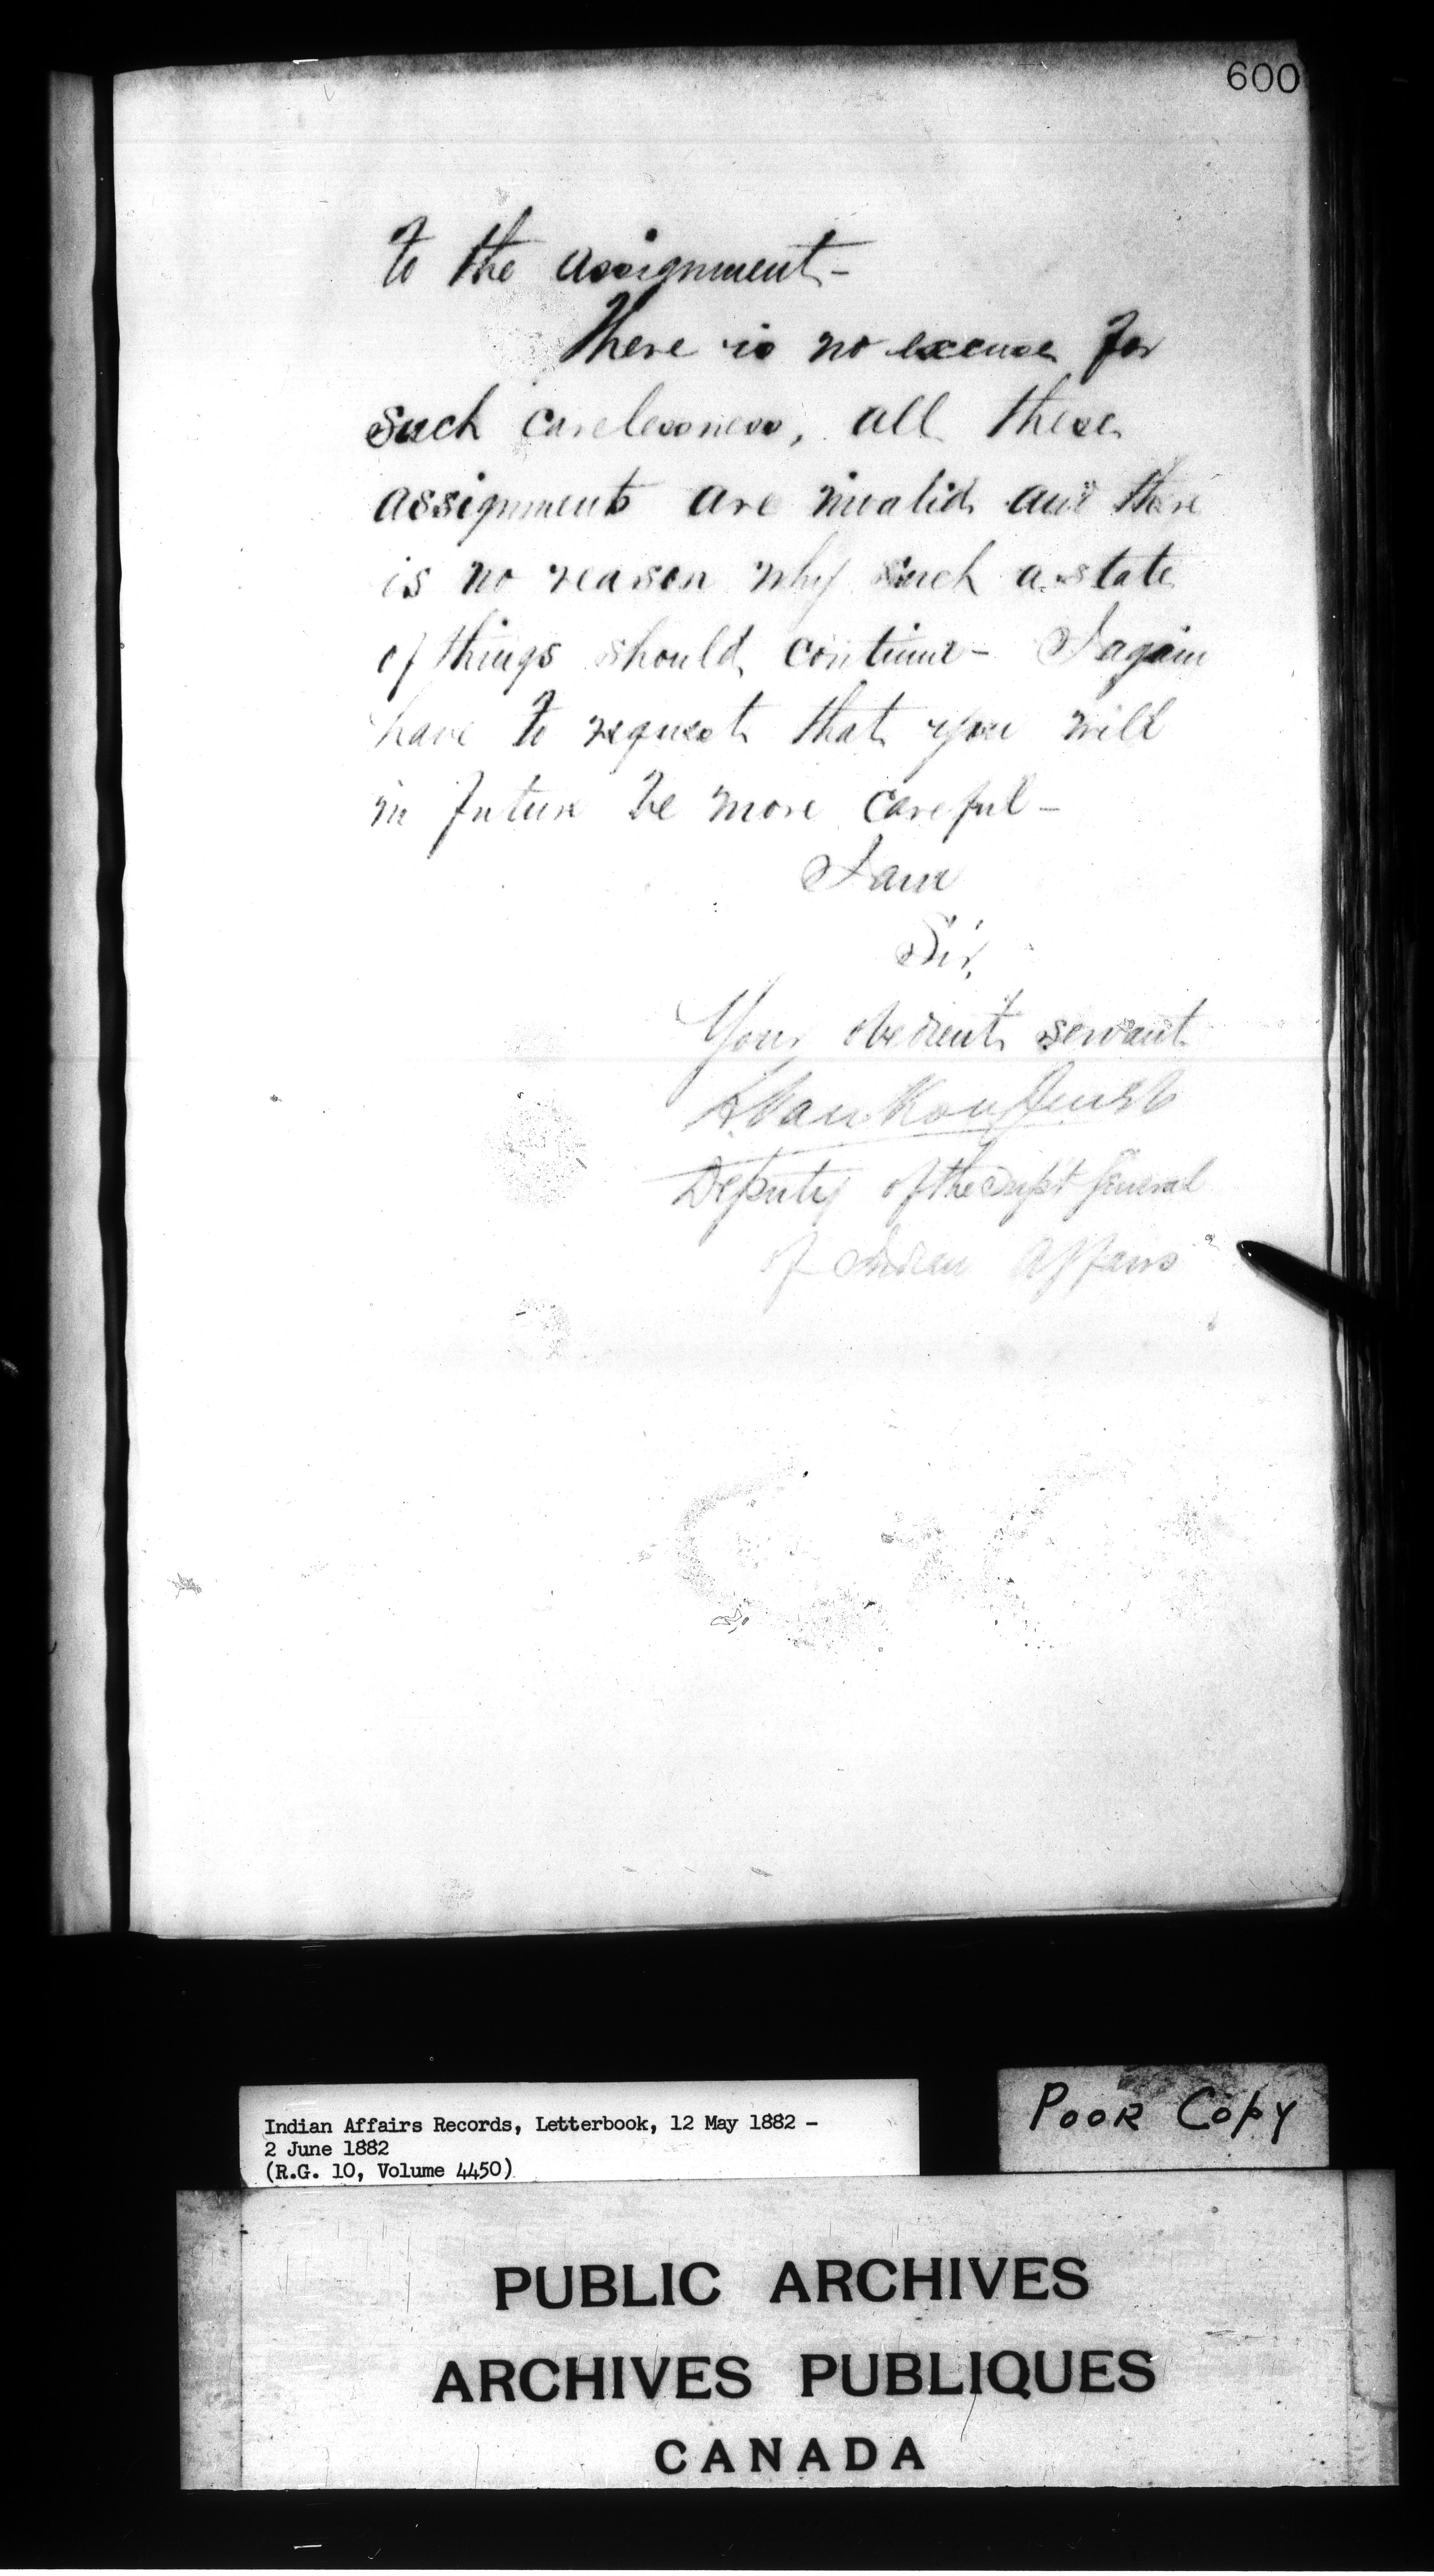 600
to the assignment -
There is no excuse for
such carelessness, all these
assignments are invalid and there
is no reason why such a state
of things should continue - I again
have to request that you will
in future be more careful -
I am
Sir,
Your obedient servant
L. Van Koughnet
Deputy of the Supt General
of Indian Affairs
Indian Affairs Records, Letterbook, 12 May 1882 -
2 June 1882
(R.G. 10, Volume 4450)
POOR COPY
PUBLIC ARCHIVES
ARCHIVES PUBLIQUES
CANADA